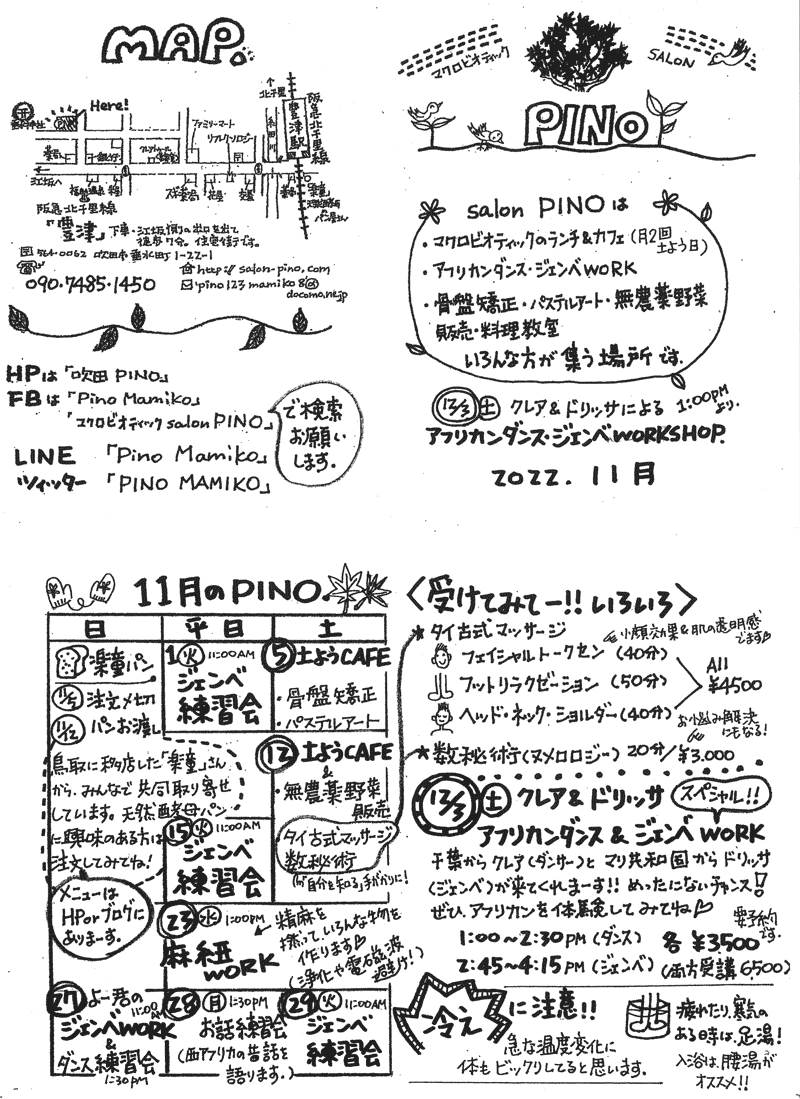 MAP.
Here!
ファミリーマート
リフレクソロジー
北千里
豊津駅
阪急北千里線
江坂へ
阪急北千里線
「豊津」下車・江坂側の出口を出て
徒歩7分。住宅街です。
〒564-0062 吹田市垂水町1-22-1
http://salon-pino.com
090・7485・1450
pino123mamiko8@
docomo.ne.jp
HPは「吹田PINO」
FBは「Pino Mamiko」
「マクロビオティックsalon PINO」
LINE「Pino Mamiko」
ツイッター「PINO MAMIKO」
で検索
お願い
します。
マクロビオティック
SALON
PINO
salon PINOは
・マクロビオティックのランチ&カフェ(月2回
土よう日)
・アフリカンダンス・ジェンベWORK
・骨盤矯正・パステルアート・無農薬野菜
販売・料理教室
いろんな方が集う場所です。
12/3 土 クレア&ドリッサによる 1:00PMより.
アフリカンダンス・ジェンベWORKSHOP.
2022.11月
11月のPINO.
日
平日
土
楽童パン
11/5 注文〆切
11/12 パンお渡し
鳥取に移店した「楽童」さん
から、みんなで共同取り寄せ
しています。天然酵母パン
に興味のある方は
注文してみてね!
メニューは
HPorブログに
ありまーす。
1 火 11:00AM
ジェンベ
練習会
5 土ようCAFE
・骨盤矯正
・パステルアート
12 土ようCAFE
&
・無農薬野菜
販売
タイ古式マッサージ
数秘術
(「自分を知る」手がかりに!
15 火 11:00AM
ジェンベ
練習会
23 水 1:00PM
麻紐
WORK
精麻を
撚って、いろんな物を
作ります♡
(浄化や電石磁波
避け!)
27 よー君の
11:00AM
ジェンベWORK
&
ダンス練習会
1:30PM
28 月 1:30PM
お話練習会
(西アフリカの昔話を
語ります。)
29 火 11:00AM
ジェンベ
練習会
〈受けてみてー!! いろいろ〉
★タイ古式マッサージ
小顔効果&肌の透明感
でます♪
フェイシャルトークセン(40分)
フットリラクゼーション(50分)
ヘッド・ネック・ショルダー(40分)
All
¥4500
お悩み解決
にもなる!
★数秘術(ヌメロロジー)20分/¥3.000
12/3 土 クレア&ドリッサ
スペシャル!!
アフリカンダンス&ジェンベWORK
千葉からクレア(ダンサー)とマリ共和国からドリッサ
(ジェンベ)が来てくれまーす!! めったにないチャンス!
ぜひ、アフリカンを体験してみてね♡
要予約
です。
1:00~2:30PM(ダンス)
2:45~4:15PM(ジェンベ)
各¥3500
(両方受講6,500)
冷え
に注意!!
急な温度変化に
体もビックリしてると思います。
疲れたり、寒気の
ある日時は、足湯!
入浴は、腰湯が
オススメ!!